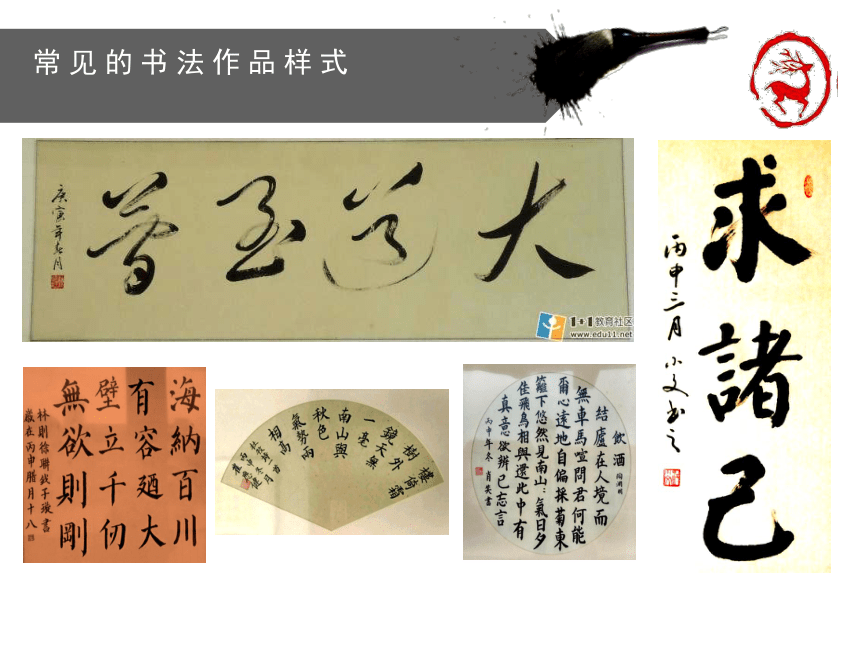 常见的书法作品样式
大道至簡
庚寅年春月
1+1教育社区
www.edu11.net
求諸己
丙申三月 小文书之
海納百川
有容廼大
壁立千仞
無欲則剛
林則徐聯 子璇書
歲在丙申腊月十八
樓倚霜
樹外
鏡天無
一毫
南山與
秋色
氣勢兩
相高
飲酒 陶渊明
結廬在人境而
無車馬喧問君何能
爾心遠地自偏採菊東
籬下悠然見南山:氣日夕
佳飛鳥相與還此中有
真意欲辨已忘言
丙申年冬 肖英書